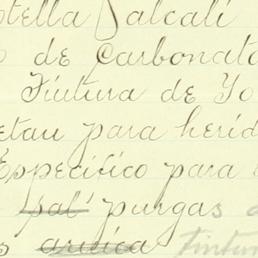 otella Dalcali
de Carbonato
Tintura de Yo
etau para herid
Especifico para
sal purgas
arnica tintur